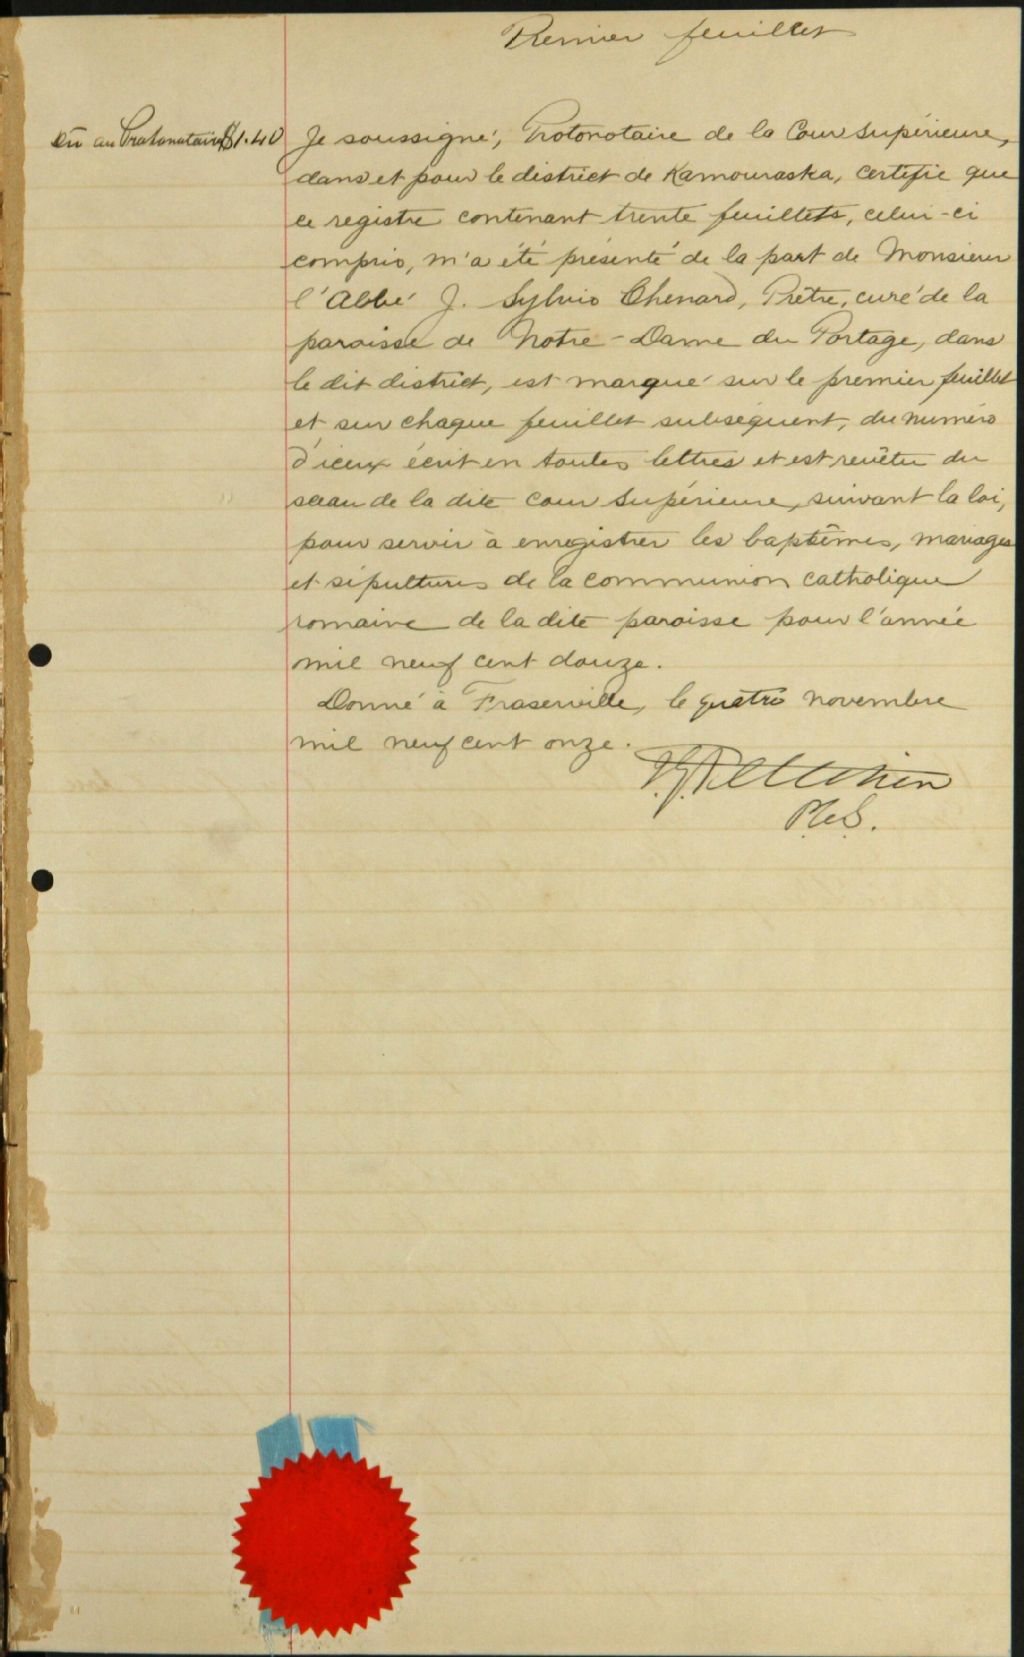 Premier feuillet
Dû au Protonotaire $1.40
Je soussigné, Protonotaire de la Cour Supérieure,
dans et pour le district de Kamouraska, certifie que
ce registre contenant trente feuillets, celui-ci
compris, m'a été présenté de la part de Monsieur
l'Abbé J. Sylvio Chenard, Prêtre, curé de la
paroisse de Notre-Dame du Portage, dans
le dit district, est marqué sur le premier feuillet
et sur chaque feuillet subséquent, du numéro
d'iceux écrit en toutes lettres et est revêtu du
sceau de la dite cour Supérieure, suivant la loi,
pour servir à enregistrer les baptêmes, mariages
et sépultures de la communion catholique
romaine de la dite paroisse pour l'année
mil neuf cent douze.
Donné à Fraserville, le quatre novembre
mil neuf cent onze.
Pelletier
P.C.S.